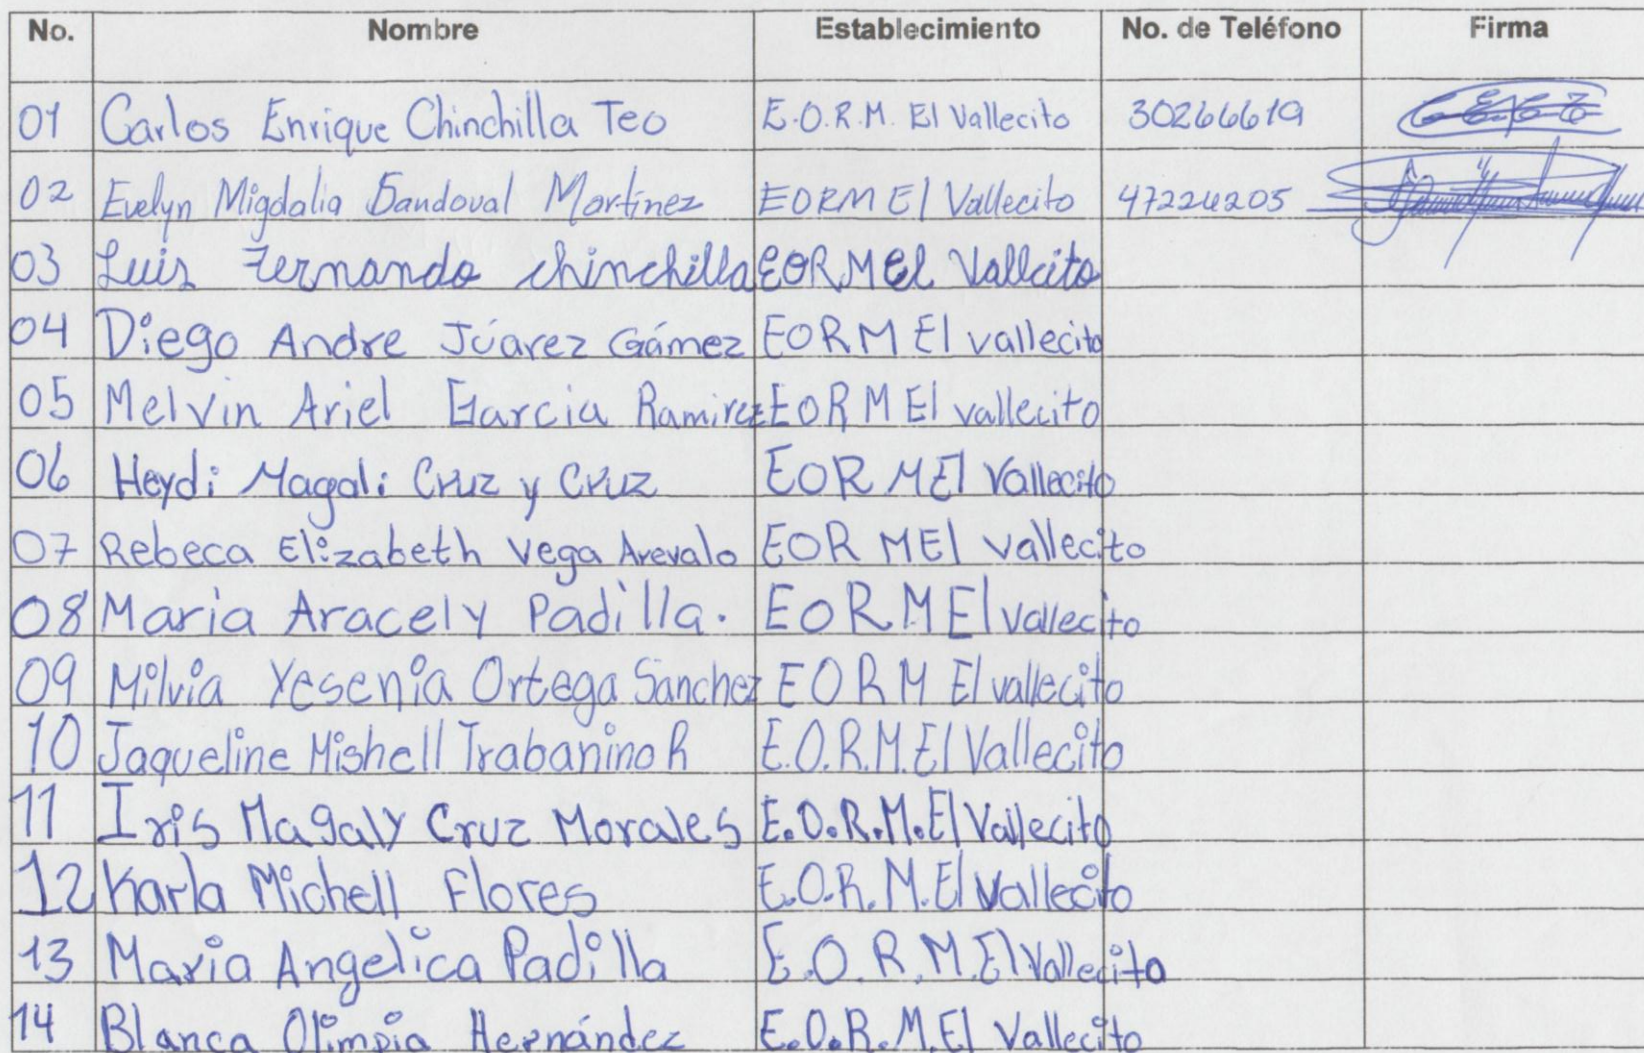 No. Nombre Establecimiento No. de Teléfono Firma
01 Carlos Enrique Chinchilla Teo E.O.R.M. El Vallecito 30266619
02 Evelyn Migdalia Sandoval Martínez EORM El Vallecito 47224205
03 Luis Fernando chinchilla EORM El Vallecito
04 Diego Andre Júarez Gámez EORM El vallecito
05 Melvin Ariel Garcia Ramirez EORM El vallecito
06 Heydi Magali Cruz y Cruz EORM El Vallecito
07 Rebeca Elizabeth Vega Arevalo EOR MEl vallecito
08 Maria Aracely Padilla. EORM El vallecito
09 Milvia Yesenia Ortega Sanchez EORM El vallecito
10 Jaqueline Mishell Trabanino R E.O.R.M. El Vallecito
11 Iris Magaly Cruz Morales E.O.R.M. El Vallecito
12 Karla Michell Flores E.O.R.M. El Vallecito
13 Maria Angelica Padilla E.O.R.M. El Vallecito
14 Blanca Olimpia Hernández E.O.R.M. El Vallecito